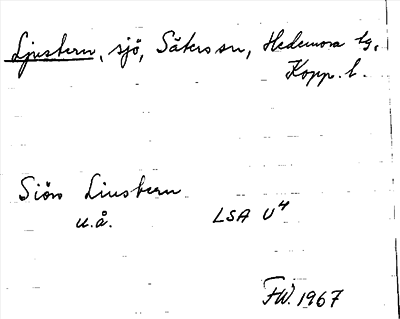 Ljustern, sjö, Säters sn, Hedemora tg,
Kopp. l.
Siön Liustern
u.å. LSA U4
FW. 1967